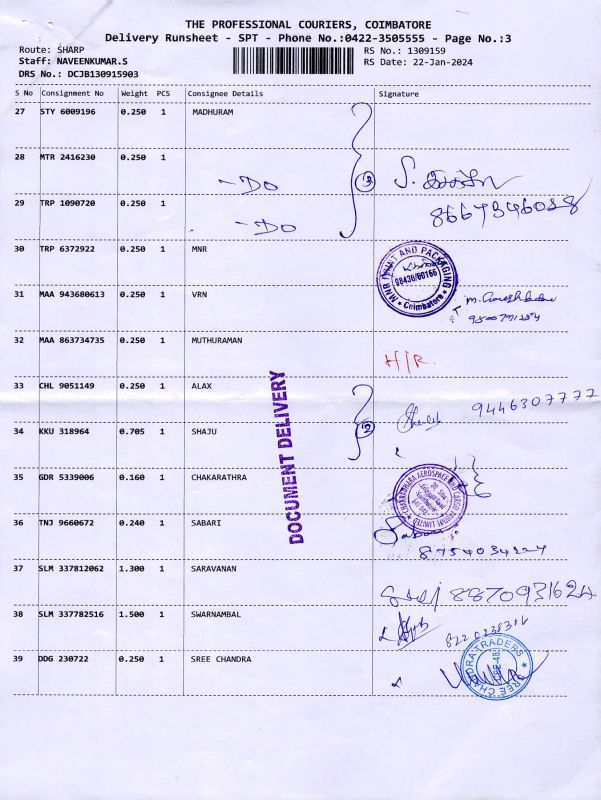 THE PROFESSIONAL COURIERS, COIMBATORE
Delivery Runsheet - SPT - Phone No.:0422-3505555 - Page No.:3
Route: SHARP RS No.: 1309159
Staff: NAVEENKUMAR.S RS Date: 22-Jan-2024
DRS No.: DCJB130915903
S No Consignment No Weight PCS Consignee Details Signature
27 STY 6009196 0.250 1 MADHURAM
28 MTR 2416230 0.250 1
-DO 3
29 TRP 1090720 0.250 1
-DO
30 TRP 6372922 0.250 1 MNR
MNR PRINT AND PACKAGING
98430/60166
Coimbatore
31 MAA 943680613 0.250 1 VRN
32 MAA 863734735 0.250 1 MUTHURAMAN
H/R
33 CHL 9051149 0.250 1 ALAX
9446307777
DOCUMENT DELIVERY
34 KKU 318964 0.705 1 SHAJU 2
35 GDR 5339006 0.160 1 CHAKARATHRA
36 TNJ 9660672 0.240 1 SABARI
8754034224
37 SLM 337812062 1.300 1 SARAVANAN
8870931624
38 SLM 337782516 1.500 1 SWARNAMBAL
39 DDG 230722 0.250 1 SREE CHANDRA
SREE CHANDRA TRADERS
CBE-48